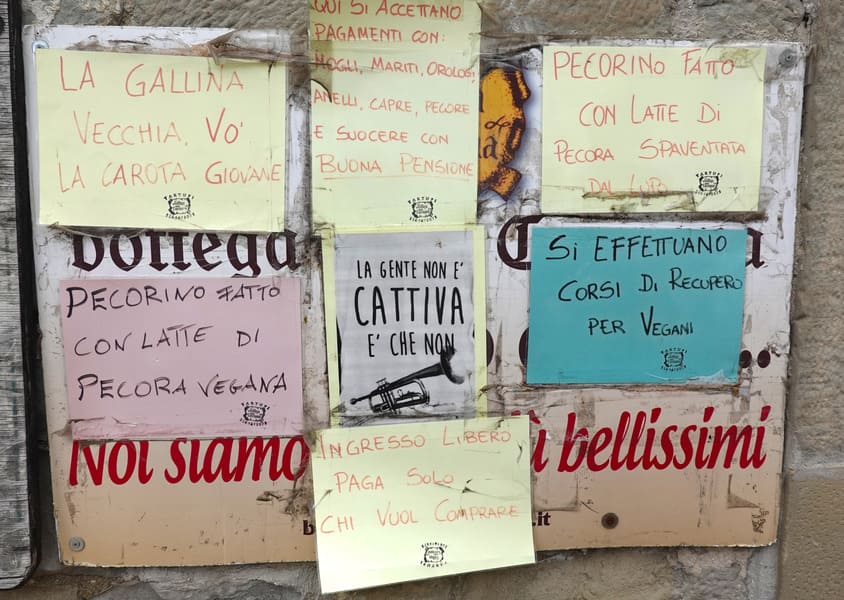 LA GALLINA
VECCHIA, VO'
LA CAROTA GIOVANE
QUI SI ACCETTANO
PAGAMENTI CON:
MOGLI, MARITI, OROLOGI,
ANELLI, CAPRE, PECORE
E SUOCERE CON
BUONA PENSIONE
PECORINO FATTO
CON LATTE DI
PECORA SPAVENTATA
DAL LUPO
bottega
PECORINO FATTO
CON LATTE DI
PECORA VEGANA
LA GENTE NON E'
CATTIVA
E' CHE NON
SI EFFETTUANO
CORSI DI RECUPERO
PER VEGANI
Noi siamo
ù bellissimi
INGRESSO LIBERO
PAGA SOLO
CHI VUOL COMPRARE
.it